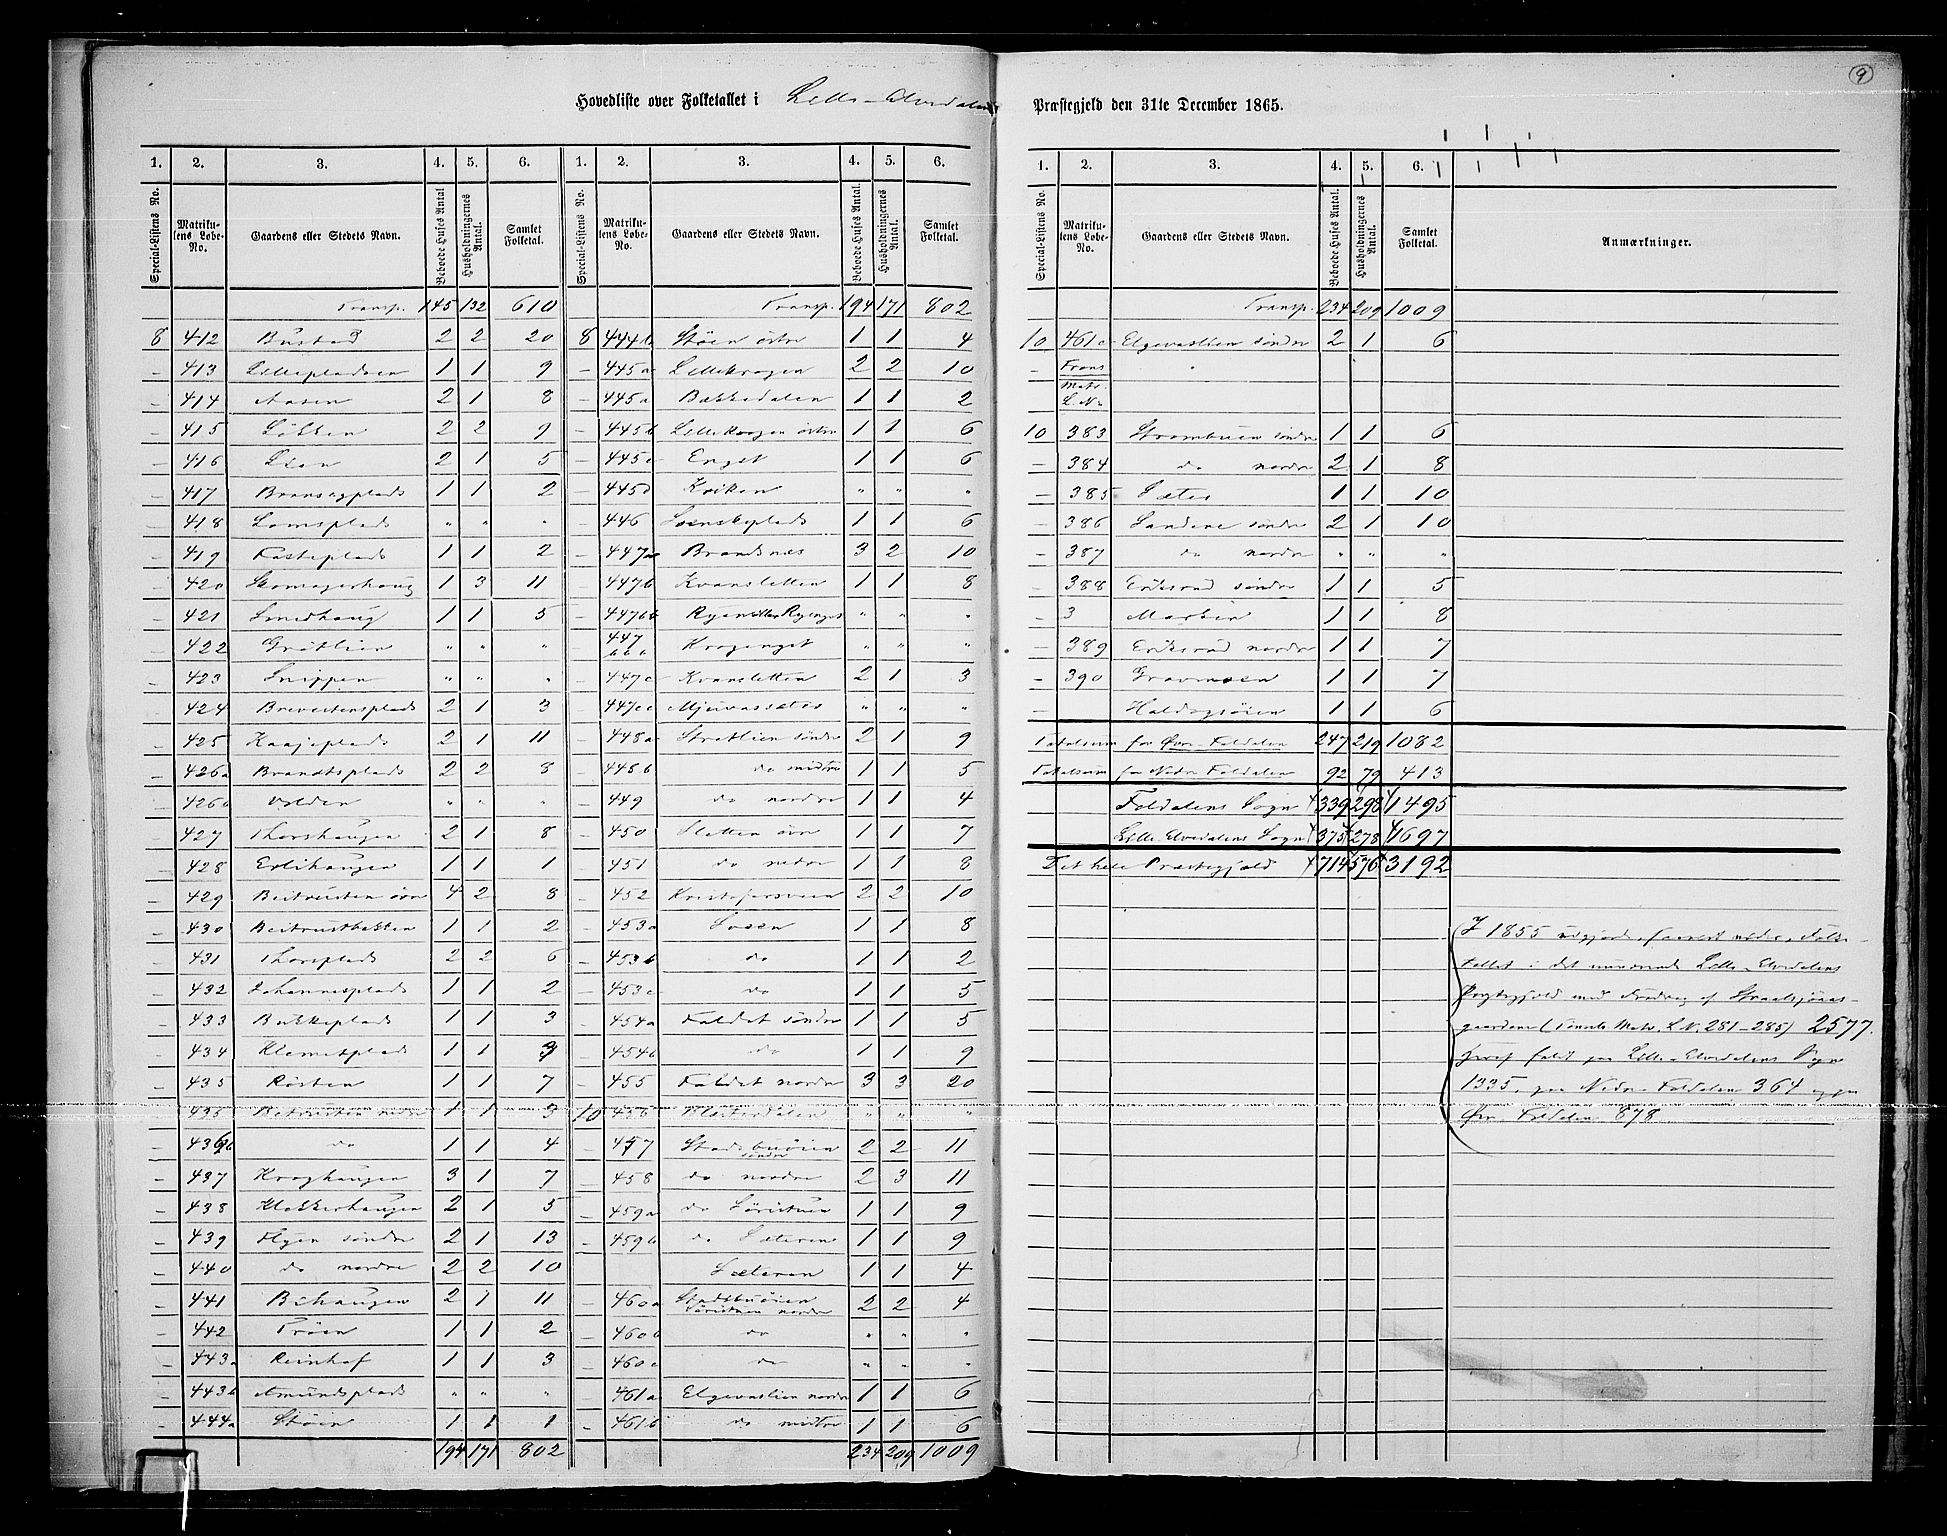 9
Hovedliste over Folketallet i Lille-Elvedalens Præstegjeld den 31te December 1865.
1. 2. 3. 4. 5. 6. 1. 2. 3. 4. 5. 6.
Special-Listens No. Matrikulens Løbe-No. Gaardens eller Stedets Navn. Beboede Huses Antal Husholdningernes Antal. Samlet Folketal. Special-Listens No. Matrikulens Løbe-No. Gaardens eller Stedets Navn. Beboede Huses Antal. Husholdningernes Antal. Samlet Folketal.
Transp. 145 132 610 Transp. 194 171 802
8 412 Bustad 2 2 20 8 444b Støen østre 1 1 4
- 413 Lillepladsen 1 1 9 - 445a Lillekrogen 2 2 10
- 414 Aasen 2 1 8 - 445a Bakkedalen 1 1 2
- 415 Løkken 2 2 9 - 445b Lillekrogen østre 1 1 6
- 416 Lien 2 1 5 - 445c Enget 1 1 6
- 417 1 1 2 - 445d Kviken " " "
- 418 Lomsplads " " " - 446 1 1 6
- 419 1 1 2 - 447a Brandsnes 3 2 10
- 420 Skomagerhaug 1 3 11 - 447b Kvansletten 1 1 8
- 421 Smedhaug 1 1 5 - 447bb Ryen eller Ryenget " " "
- 422 Grøtlien " " " - 447 Krogenget " " "
- 423 Snippen " " " - 447c Kvansletten 2 1 3
- 424 2 1 3 - 447cc " " "
- 425 Kaajeplads 2 1 11 - 448a Stratlien søndre 2 1 9
- 426a Brandtsplads 2 2 8 - 448b do midtre 1 1 5
- 426b Volden " " " - 449 do nordre 1 1 4
- 427 Thorshaugen 2 1 8 - 450 Sletten øvre 1 1 7
- 428 Erlihaugen 1 1 1 - 451 do nedre 1 1 8
- 429 Beitrusten øvre 4 2 8 - 452 2 2 10
- 430 Beitrustbakken 1 1 2 - 453a 1 1 8
- 431 Thorsplads 2 2 6 - 453b do 1 1 2
- 432 Johannesplads 1 1 2 - 453c do 1 1 5
- 433 Bekkeplads 1 1 3 - 454a Faldet søndre 1 1 5
- 434 Klemetsplads 1 1 3 - 454b do 1 1 9
- 435 Røsten 1 1 7 - 455 Faldet nordre 3 3 20
- 436 Beitrusten nedre 1 1 3 10 456 " " "
- 436b do 1 1 4 - 457 Stadsbuøien søndre 2 2 11
- 437 Kroghaugen 3 1 7 - 458 do nordre 2 3 11
- 438 Klokkerhaugen 2 1 5 - 459a do 1 1 9
- 439 Ryen søndre 2 1 13 - 459b do Sæteren 1 1 9
- 440 do nordre 2 2 10 Sæteren 1 1 4
- 441 Bihaugen 2 1 11 - 460a Stadsbuøien nordre 2 2 4
- 442 Trøen 1 1 2 - 460b do " " "
- 443a Reinhof 1 1 3 - 460c do " " "
- 443b Amundsplads " " " 461a Elgevaslien nordre 1 1 6
- 444a Støin 1 1 1 - 461b do midtre 1 1 6
194 171 802 234 209 1009
1. 2. 3. 4. 5. 6.
Special-Listens No. Matrikulens Løbe-No. Gaardens eller Stedets Navn. Beboede Huses Antal. Husholdningernes Antal. Samlet Folketal. Anmærkninger.
Transp. 234 209 1009
10 461c Elgevaslien søndre 2 1 6
- Frons
Matr.
L. No
10 383 Strømbuen søndre 1 1 6
- 384 do nordre 2 1 8
- 385 Sæter 1 1 10
- 386 Sandene søndre 2 1 10
- 387 do nordre " " "
- 388 Eriksrud søndre 1 1 5
- 3 Moseb 1 1 8
- 389 Eriksrud nordre 1 1 7
- 390 Gravmoen 1 1 7
- Haldogsøien 1 1 6
Totalsum for Øvre-Foldalen 247 219 1082
Totalsum for Nedre Foldalen 92 79 413
Foldalens Sogn 339 298 1495
Lille Elvedalens Sogn 375 278 1697
Det hele Præstegjeld 714 576 3192
I 1855 udgjorde, saavidt vides, Folke-
tallet i det nuværende Lille-Elvedalens
Prestegjeld med Fradrag af Straalsjøaas-
gaardene (Tønsets Matr. L.N. 281-285) 2577.
hvoraf faldt paa Lille-Elvedalens Sogn
1335, paa Nedre-Foldalen 364 og paa
Øvre-Foldalen 878